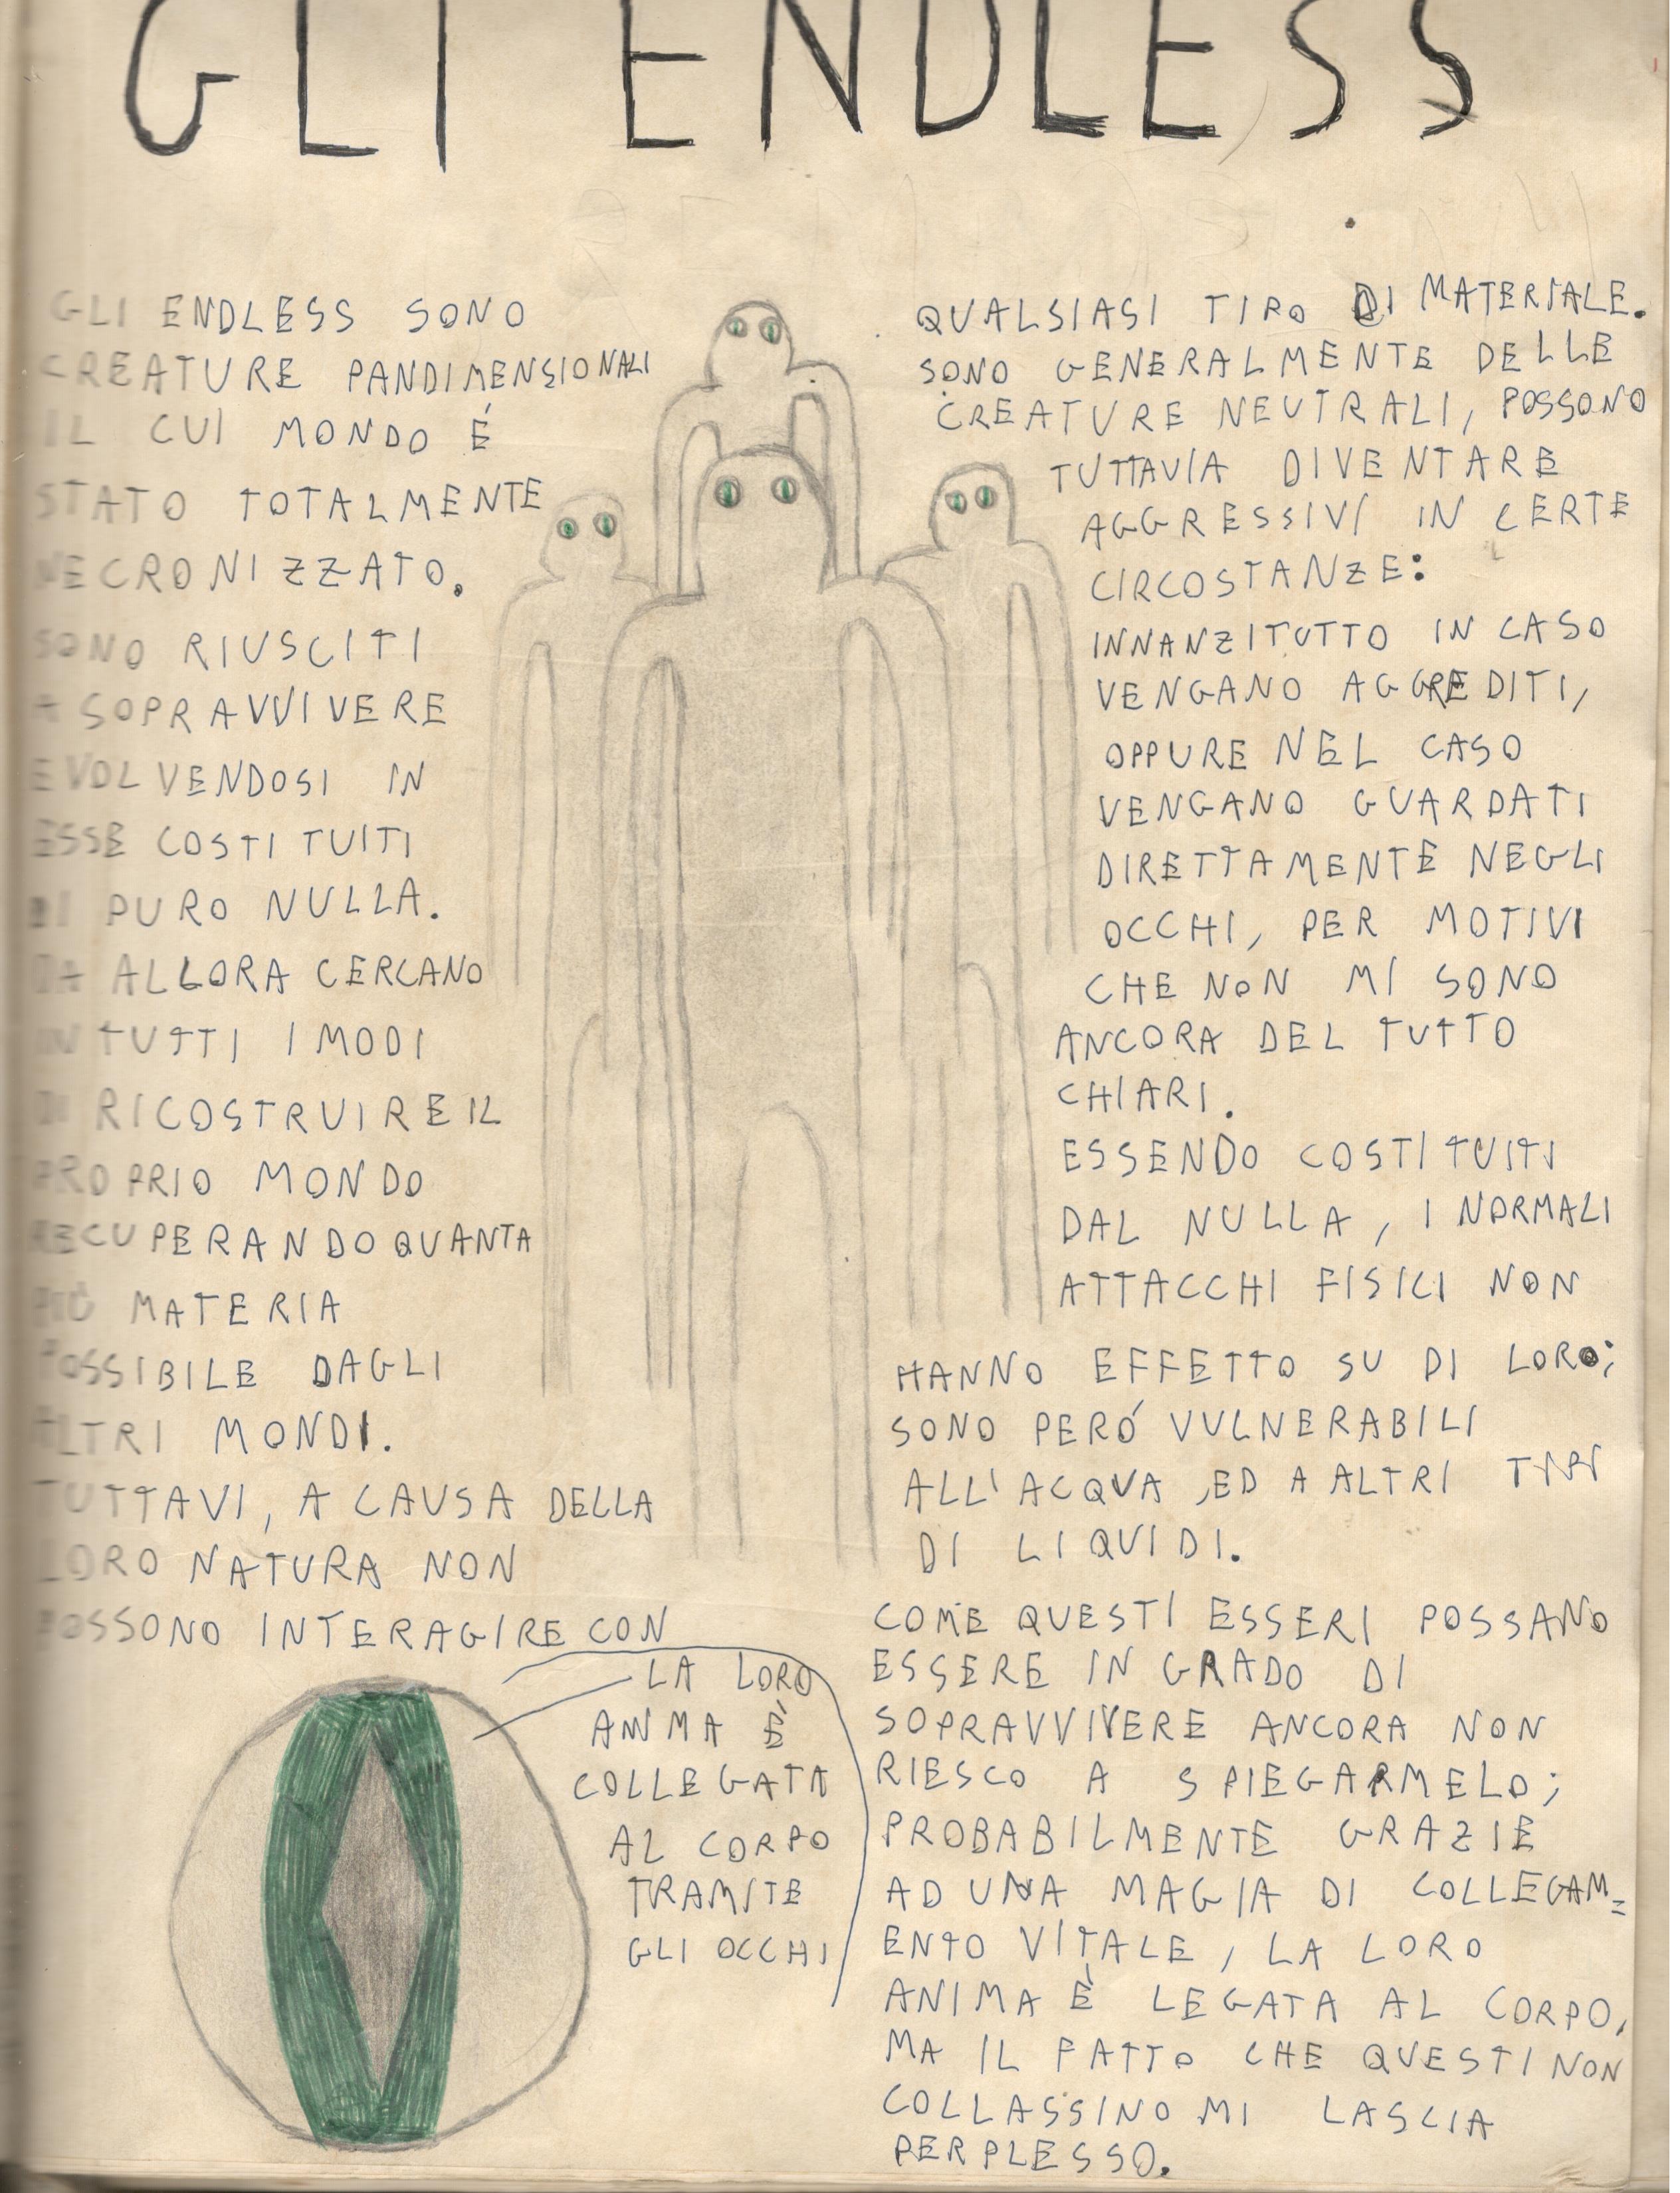 GLI ENDLESS
GLI ENDLESS SONO
CREATURE PANDIMENSIONALI
IL CUI MONDO É
STATO TOTALMENTE
NECRONIZZATO.
SONO RIUSCITI
A SOPRAVVIVERE
EVOLVENDOSI IN
ESSE COSTITUITI
DI PURO NULLA.
DA ALLORA CERCANO
IN TUTTI I MODI
DI RICOSTRUIRE IL
PROPRIO MONDO
RECUPERANDO QUANTA
PIÚ MATERIA
POSSIBILE DAGLI
ALTRI MONDI.
TUTTAVI, A CAUSA DELLA
LORO NATURA NON
POSSONO INTERAGIRE CON
LA LORO
ANIMA È
COLLEGATA
AL CORPO
TRAMITE
GLI OCCHI
QUALSIASI TIPO DI MATERIALE.
SONO GENERALMENTE DELLE
CREATURE NEUTRALI, POSSONO
TUTTAVIA DIVENTARE
AGGRESSIVI IN CERTE
CIRCOSTANZE:
INNANZITUTTO IN CASO
VENGANO AGGREDITI,
OPPURE NEL CASO
VENGANO GUARDATI
DIRETTAMENTE NEGLI
OCCHI, PER MOTIVI
CHE NON MI SONO
ANCORA DEL TUTTO
CHIARI.
ESSENDO COSTITUITI
DAL NULLA, I NORMALI
ATTACCHI FISICI NON
HANNO EFFETTO SU DI LORO;
SONO PERÓ VULNERABILI
ALL'ACQUA, ED A ALTRI TIPI
DI LIQUIDI.
COME QUESTI ESSERI POSSANO
ESSERE IN GRADO DI
SOPRAVVIVERE ANCORA NON
RIESCO A SPIEGARMELO;
PROBABILMENTE GRAZIE
AD UNA MAGIA DI COLLEGAM=
ENTO VITALE, LA LORO
ANIMA È LEGATA AL CORPO,
MA IL FATTO CHE QUESTI NON
COLLASSINO MI LASCIA
PERPLESSO.